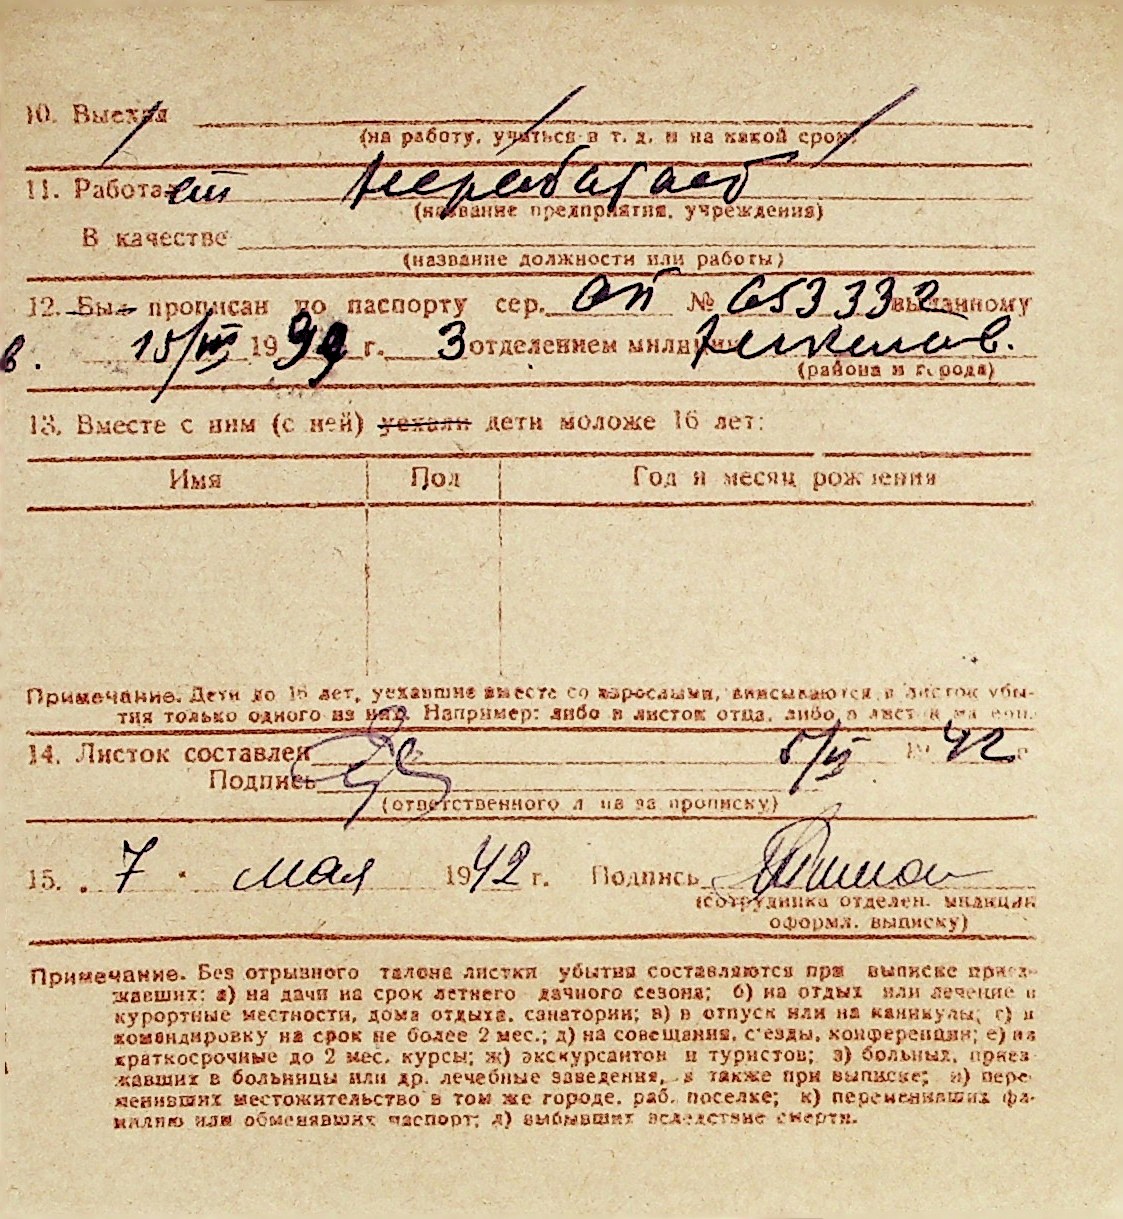 10. Выехал
(на работу, учиться и т. д. и на какой срок)
11. Работает Не работает
(название предприятия, учреждения)
В качестве
(название должности или работы)
12. Был прописан по паспорту сер. № 653332 выданному
в. 15/III 1939 г. 3 отделением милиции
(района и города)
13. Вместе с ним (с ней) уехали дети моложе 16 лет:
Имя Пол Год и месяц рождения
Примечание. Дети до 16 лет, уехавшие вместе со взрослыми, вписываются в листок убы-
тия только одного из них. Например: либо в листок отца, либо в листок матери.
14. Листок составлен 1942 г.
Подпись
(ответственного лица за прописку)
15. 7 мая 1942 г. Подпись
(сотрудника отделен. милиции
оформл. выписку)
Примечание. Без отрывного талона листки убытия составляются при выписке приез-
жавших: а) на дачи на срок летнего дачного сезона; б) на отдых или лечение в
курортные местности, дома отдыха, санатории; в) в отпуск или на каникулы; г) в
командировку на срок не более 2 мес.; д) на совещания, с'езды, конференции; е) на
краткосрочные до 2 мес. курсы; ж) экскурсантов и туристов; з) больных, приез-
жавших в больницы или др. лечебные заведения, а также при выписке; и) пере-
менивших местожительство в том же городе, раб. поселке; к) переменивших фа-
милию или обменявших паспорт; л) выбывших вследствие смерти.